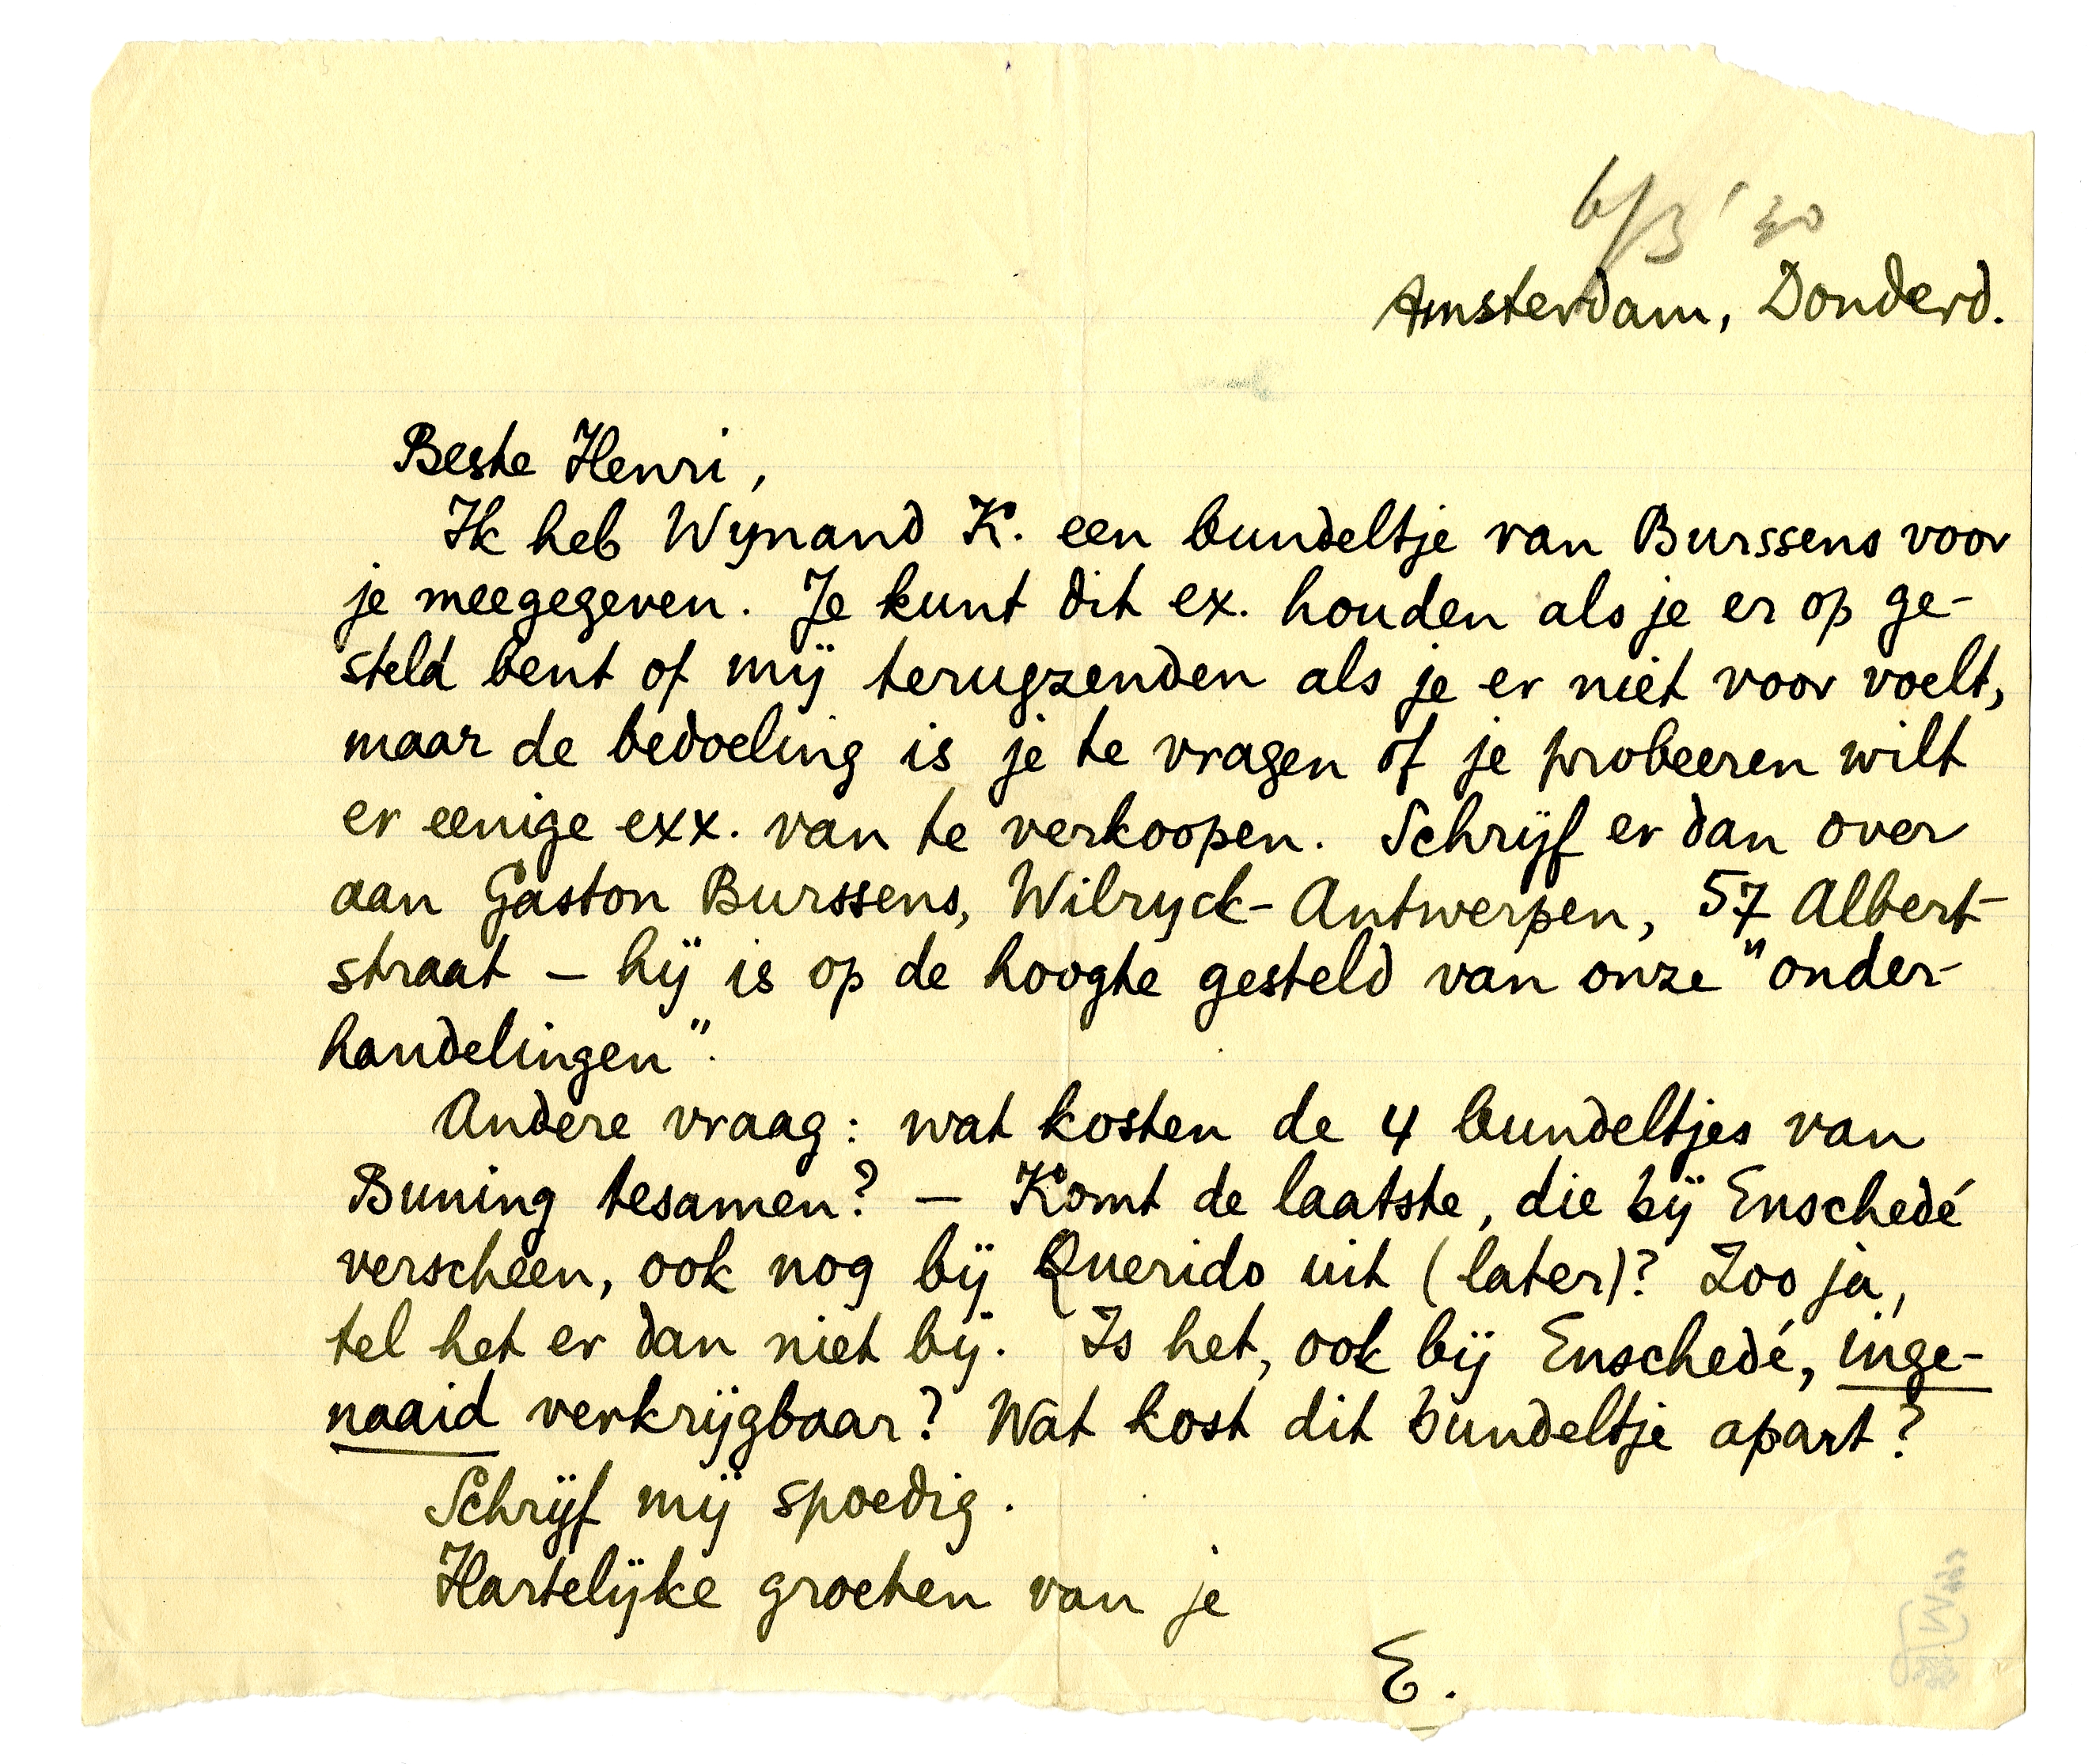 6/3 '30
Amsterdam, Donderd.
Beste Henri,
Ik heb Wynand K. een bundeltje van Burssens voor
je meegegeven. Je kunt dit ex. houden als je er op ge-
steld bent of mij terugzenden als je er niet voor voelt,
maar de bedoeling is je te vragen of je probeeren wilt
er eenige exx. van te verkoopen. Schrijf er dan over
aan Gaston Burssens, Wilryck-Antwerpen, 57 Albert-
straat – hij is op de hoogte gesteld van onze "onder-
handelingen".
Andere vraag: wat kosten de 4 bundeltjes van
Buning tesamen? – Komt de laatste, die bij Enschedé
verscheen, ook nog bij Querido uit (later)? Zoo ja,
tel het er dan niet bij. Is het, ook bij Enschedé, inge-
naaid verkrijgbaar? Wat kost dit bundeltje apart?
Schrijf mij spoedig.
Hartelijke groeten van je
E.